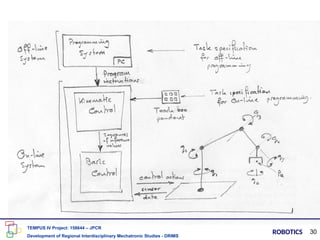 Off-line
System
Programming
System
PC
Task specification
for off-line
programming
Program
instructions
Kinematic
Control
Teach box
pendant
Task specification
for On-line programming.
values
On-line
System
Basic
Control
control actions
sensor
data
TEMPUS IV Project: 158644 – JPCR
Development of Regional Interdisciplinary Mechatronic Studies - DRIMS
ROBOTICS
30